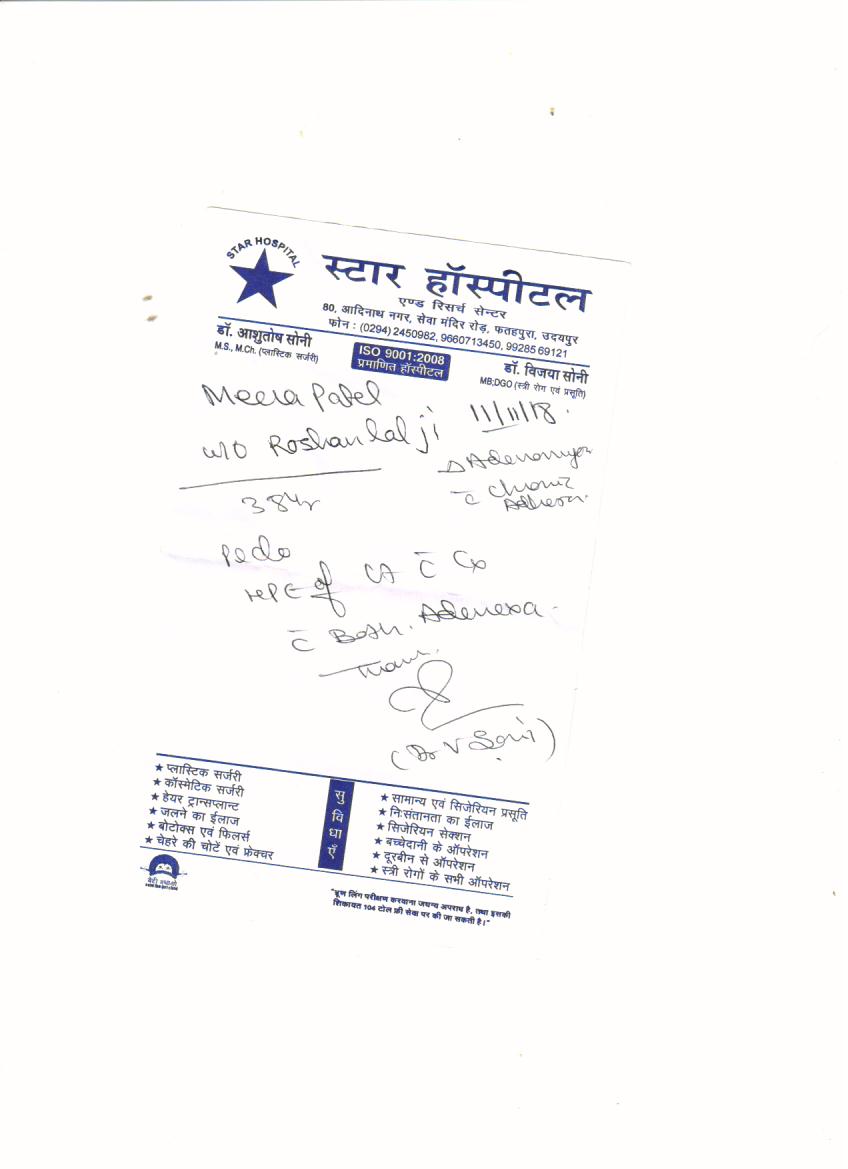 STAR HOSPITAL
स्टार हॉस्पीटल
एण्ड रिसर्च सेन्टर
80, आदिनाथ नगर, सेवा मंदिर रोड़, फतहपुरा, उदयपुर
फोन : (0294) 2450982, 9660713450, 99285 69121
डॉ. आशुतोष सोनी
M.S., M.Ch. (प्लास्टिक सर्जरी)
ISO 9001:2008
प्रमाणित हॉस्पीटल
डॉ. विजया सोनी
MB;DGO (स्त्री रोग एवं प्रसूति)
Meera Patel
11/11/18.
w/o Roshan lal ji
38yr
HPE of
Both. Adenexa
(Dr V Soni)
★ प्लास्टिक सर्जरी
★ कॉस्मेटिक सर्जरी
★ हेयर ट्रान्सप्लान्ट
★ जलने का ईलाज
★ बोटोक्स एवं फिलर्स
★ चेहरे की चोटें एवं फ्रेक्चर
सुविधाएँ
★ सामान्य एवं सिजेरियन प्रसूति
★ निःसंतानता का ईलाज
★ सिजेरियन सेक्शन
★ बच्चेदानी के ऑपरेशन
★ दूरबीन से ऑपरेशन
★ स्त्री रोगों के सभी ऑपरेशन
बेटी बचाओ
"भ्रूण लिंग परीक्षण करवाना जघन्य अपराध है, तथा इसकी
शिकायत 104 टोल फ्री सेवा पर की जा सकती है।"